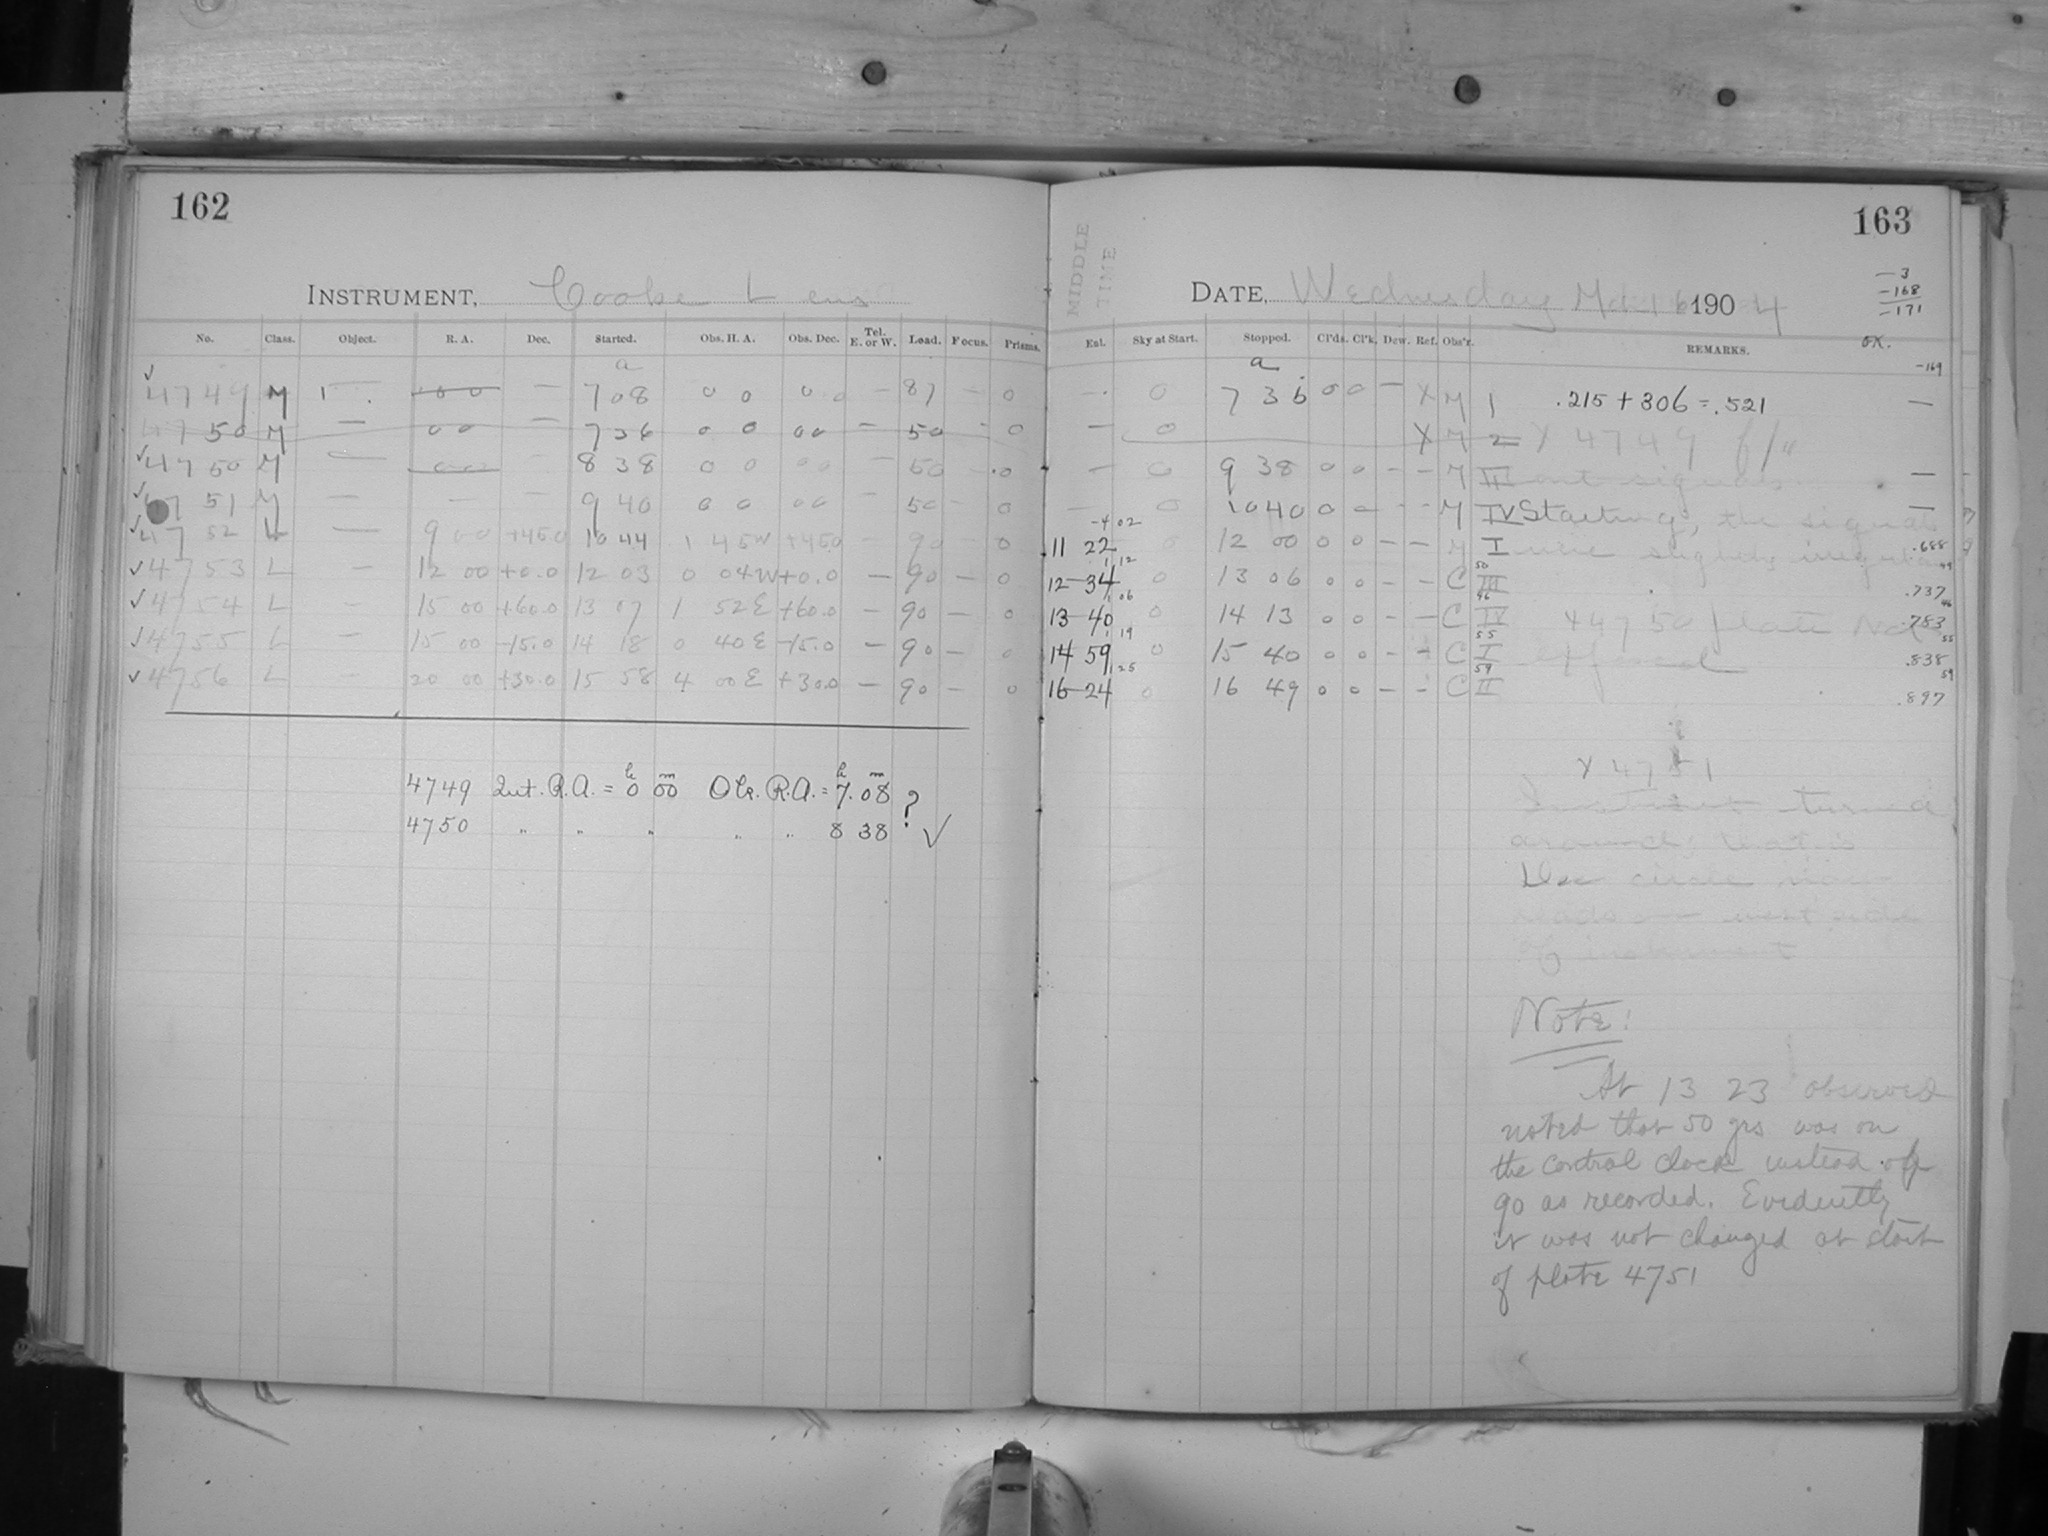 162
INSTRUMENT, Cooke Lens
No. Class. Object. R. A. Dec. Started. Obs. H. A. Obs. Dec. Tel. E. or W. Load. Focus. Prisms.
a
4749 M 1 — 00 — 7 08 0 0 0 0 — 87 — 0
4750 M — 00 — 736 0 0 00 — 50 — 0
4750 M — 00 — 8 38 0 0 00 — 50 — 0
4751 M — — — 9 40 0 0 00 — 50 — 0
4752 L — 9 00 +45.0 10 44 1 45W +45.0 — 90 — 0
4753 L — 12 00 +0.0 12 03 0 04W +0.0 — 90 — 0
4754 L — 15 00 +60.0 13 07 1 52E +60.0 — 90 — 0
4755 L — 15 00 -15.0 14 18 0 40E -15.0 — 90 — 0
4756 L — 20 00 +30.0 15 58 4 00E +30.0 — 90 — 0
4749 Int. R.A. = 0h 00m Obs. R.A. = 7h.08m ?
4750 " " " " " 8 38 ✓
163
MIDDLE TIME
DATE, Wednesday Mch 16 1904
—3
—168
—171
Ext. Sky at Start. Stopped. Cl'ds. Cl'k. Dew. Ref. Obs'r. REMARKS.
OK.
-169
a
— 0 7 36 0 0 — X M 1 .215 + 306 = .521 —
— 0 X M 2 X 4749 f/"
— 0 9 38 0 0 - - M III out signals —
— 0 10 40 0 — - - M IV Starting, the signals —
-4 02
11 22 0 12 00 0 0 — — M I were slightly irregular .688
1 12
12-34 0 13 06 0 0 - - C III .737
1 06
13-40 0 14 13 0 0 - — C IV X 4750 plate not .783
1 19
14 59 0 15 40 0 0 - - C I exposed .838
1 25
16-24 0 16 49 0 0 - - C II .897
X 4751
Instrument turned
around, that is
Dec circle now
reads on west side
of instrument
Note!
At 13 23 observer
noted that 50 grs was on
the control clock instead of
90 as recorded. Evidently
it was not changed at start
of plate 4751